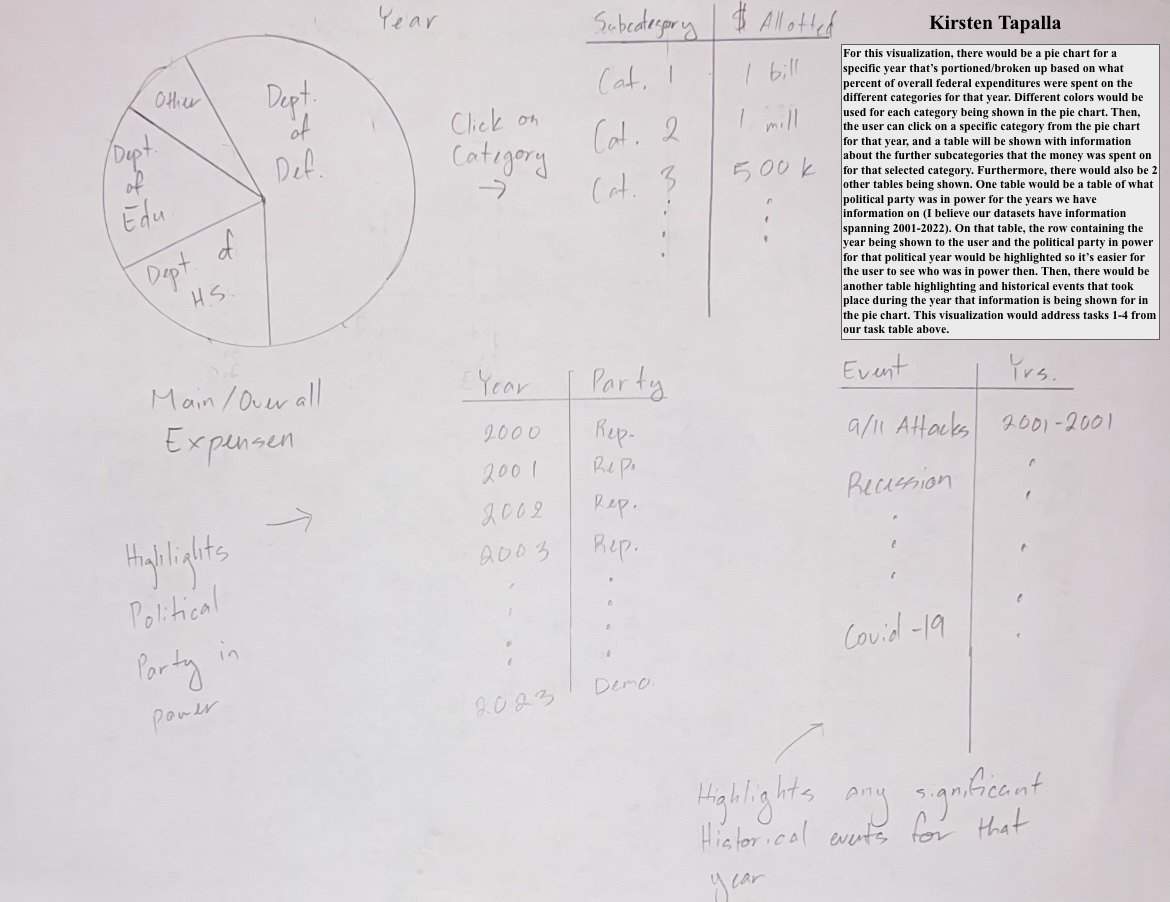 Year
Other
Dept.
of
Def.
Dept.
of
Edu
Dept. of
H.S.
Click on
Category
Subcategory $ Allotted
Cat. 1 1 bill
Cat. 2 1 mill
Cat. 3 500k
Kirsten Tapalla
For this visualization, there would be a pie chart for a
specific year that's portioned/broken up based on what
percent of overall federal expenditures were spent on the
different categories for that year. Different colors would be
used for each category being shown in the pie chart. Then,
the user can click on a specific category from the pie chart
for that year, and a table will be shown with information
about the further subcategories that the money was spent on
for that selected category. Furthermore, there would also be 2
other tables being shown. One table would be a table of what
political party was in power for the years we have
information on (I believe our datasets have information
spanning 2001-2022). On that table, the row containing the
year being shown to the user and the political party in power
for that political year would be highlighted so it's easier for
the user to see who was in power then. Then, there would be
another table highlighting and historical events that took
place during the year that information is being shown for in
the pie chart. This visualization would address tasks 1-4 from
our task table above.
Main/Overall
Highlights
Political
Party in
power
Year Party
2000 Rep.
2001 Rep.
2002 Rep.
2003 Rep.
2023 Demo.
Event Yrs.
9/11 Attacks 2001-2001
Recession
Covid-19
Highlights any significant
Historical events for that
year